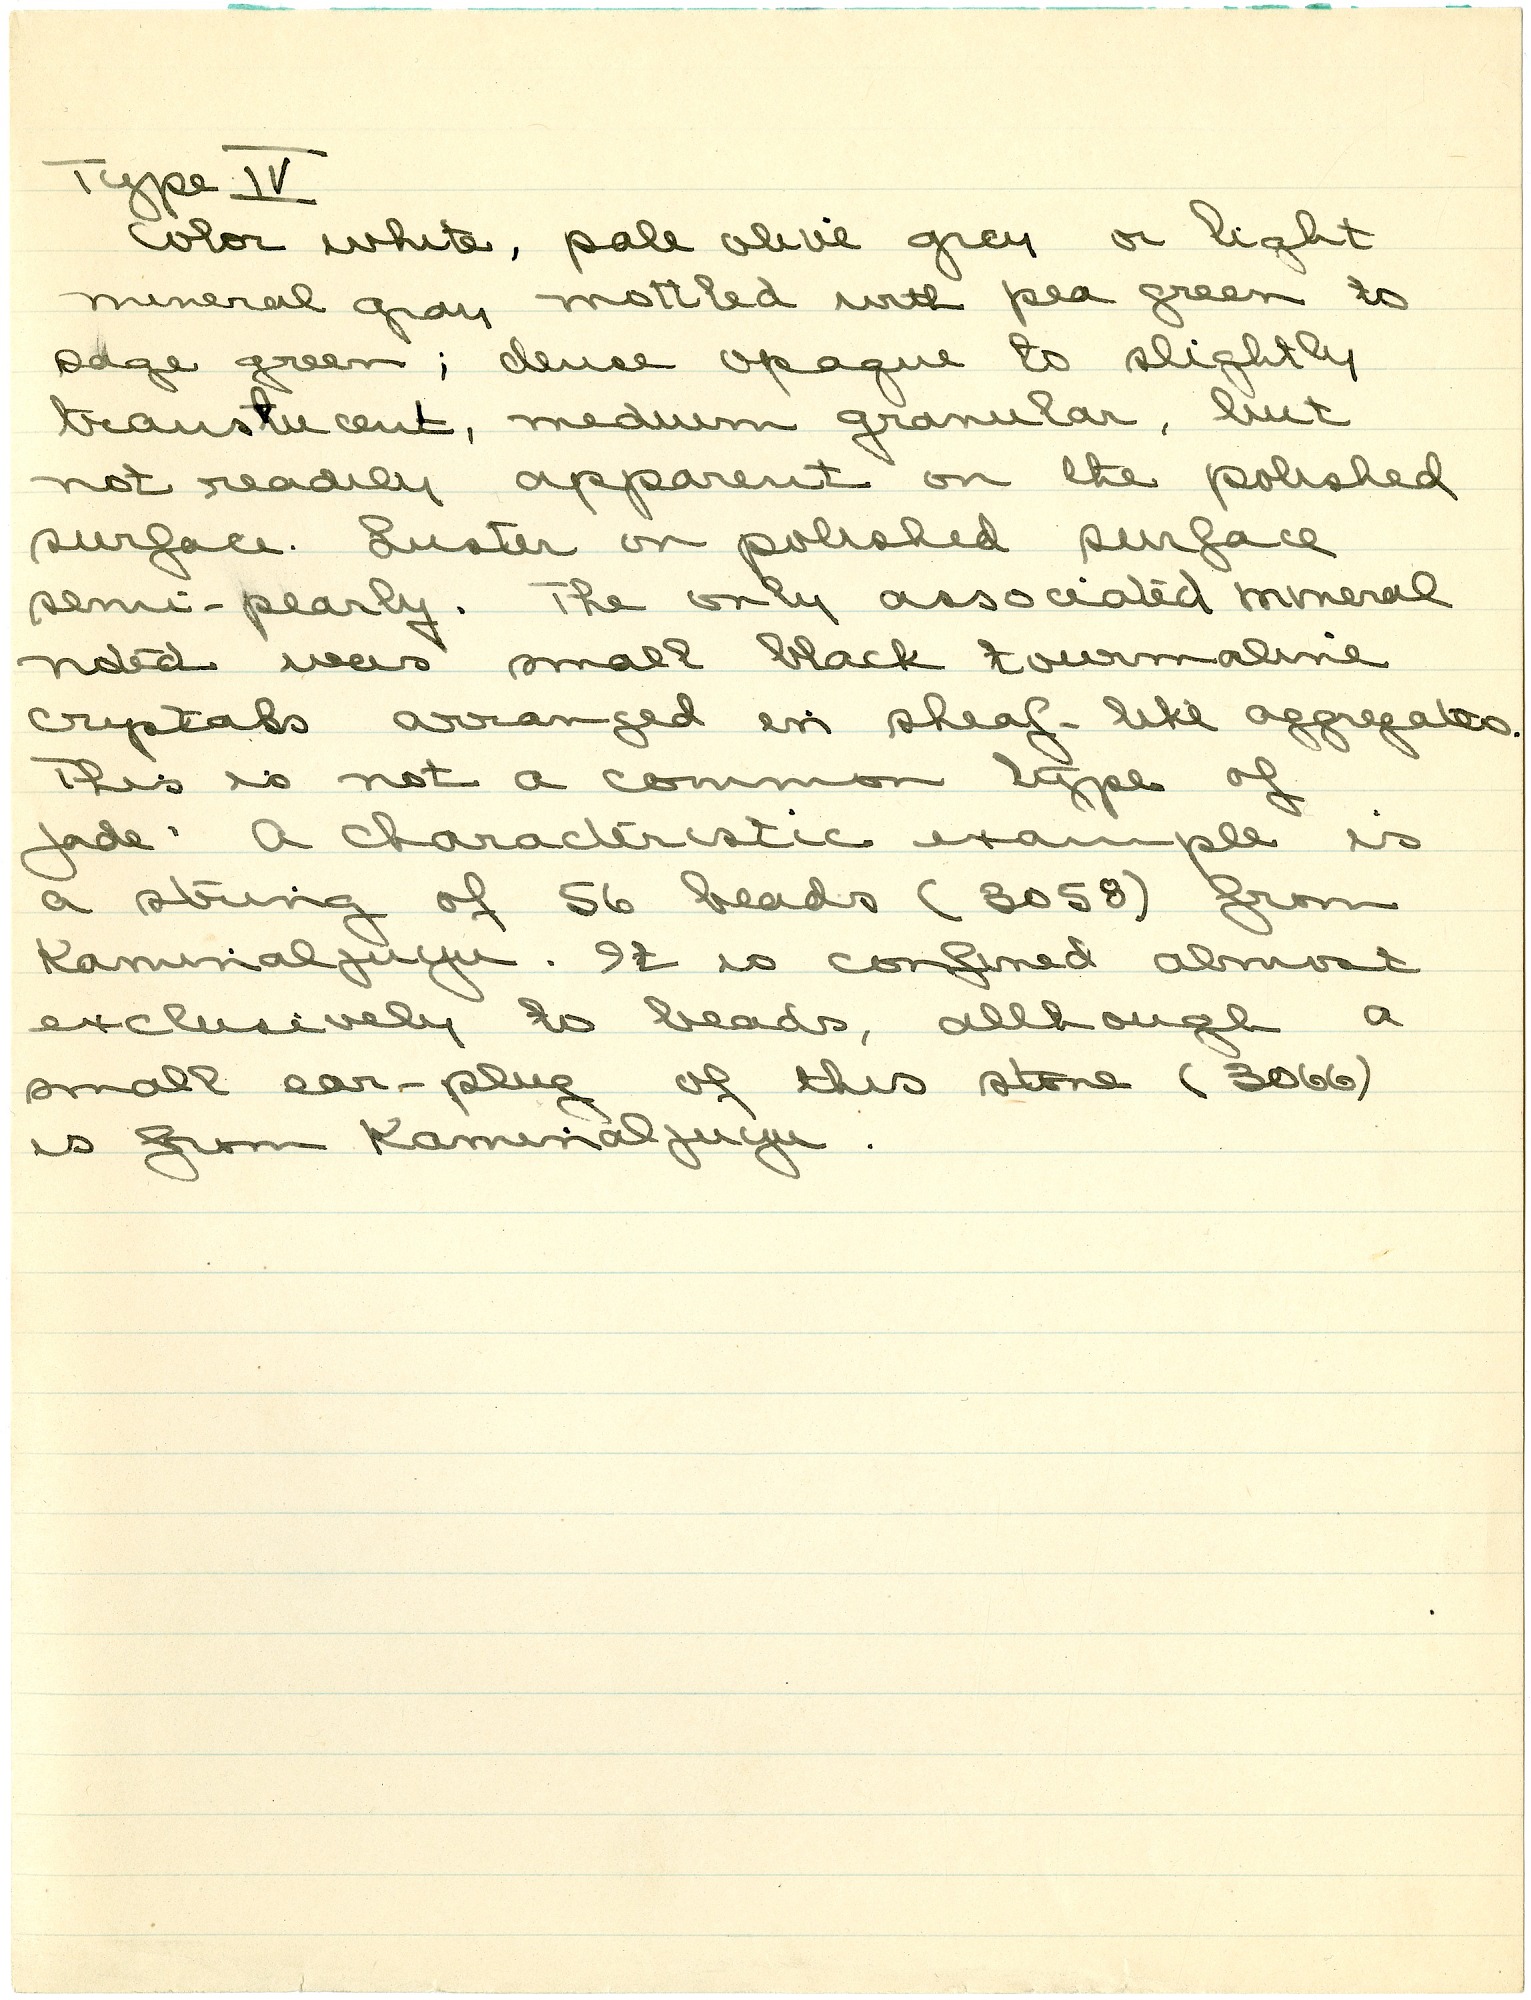 Type IV
Color white, pale olive grey or light
mineral gray mottled with pea green to
sage green; dense opaque to slightly
translucent, medium granular, but
not readily apparent on the polished
surface. Luster on polished surface
semi-pearly. The only associated mineral
noted was small black tourmaline
cryptals arranged in sheaf-like aggregates.
This is not a common type of
jade. A characteristic example is
a string of 56 beads (3058) from
Kaminaljuyu. It is confined almost
exclusively to beads, although a
small ear-plug of this stone (3066)
is from Kaminaljuyu.